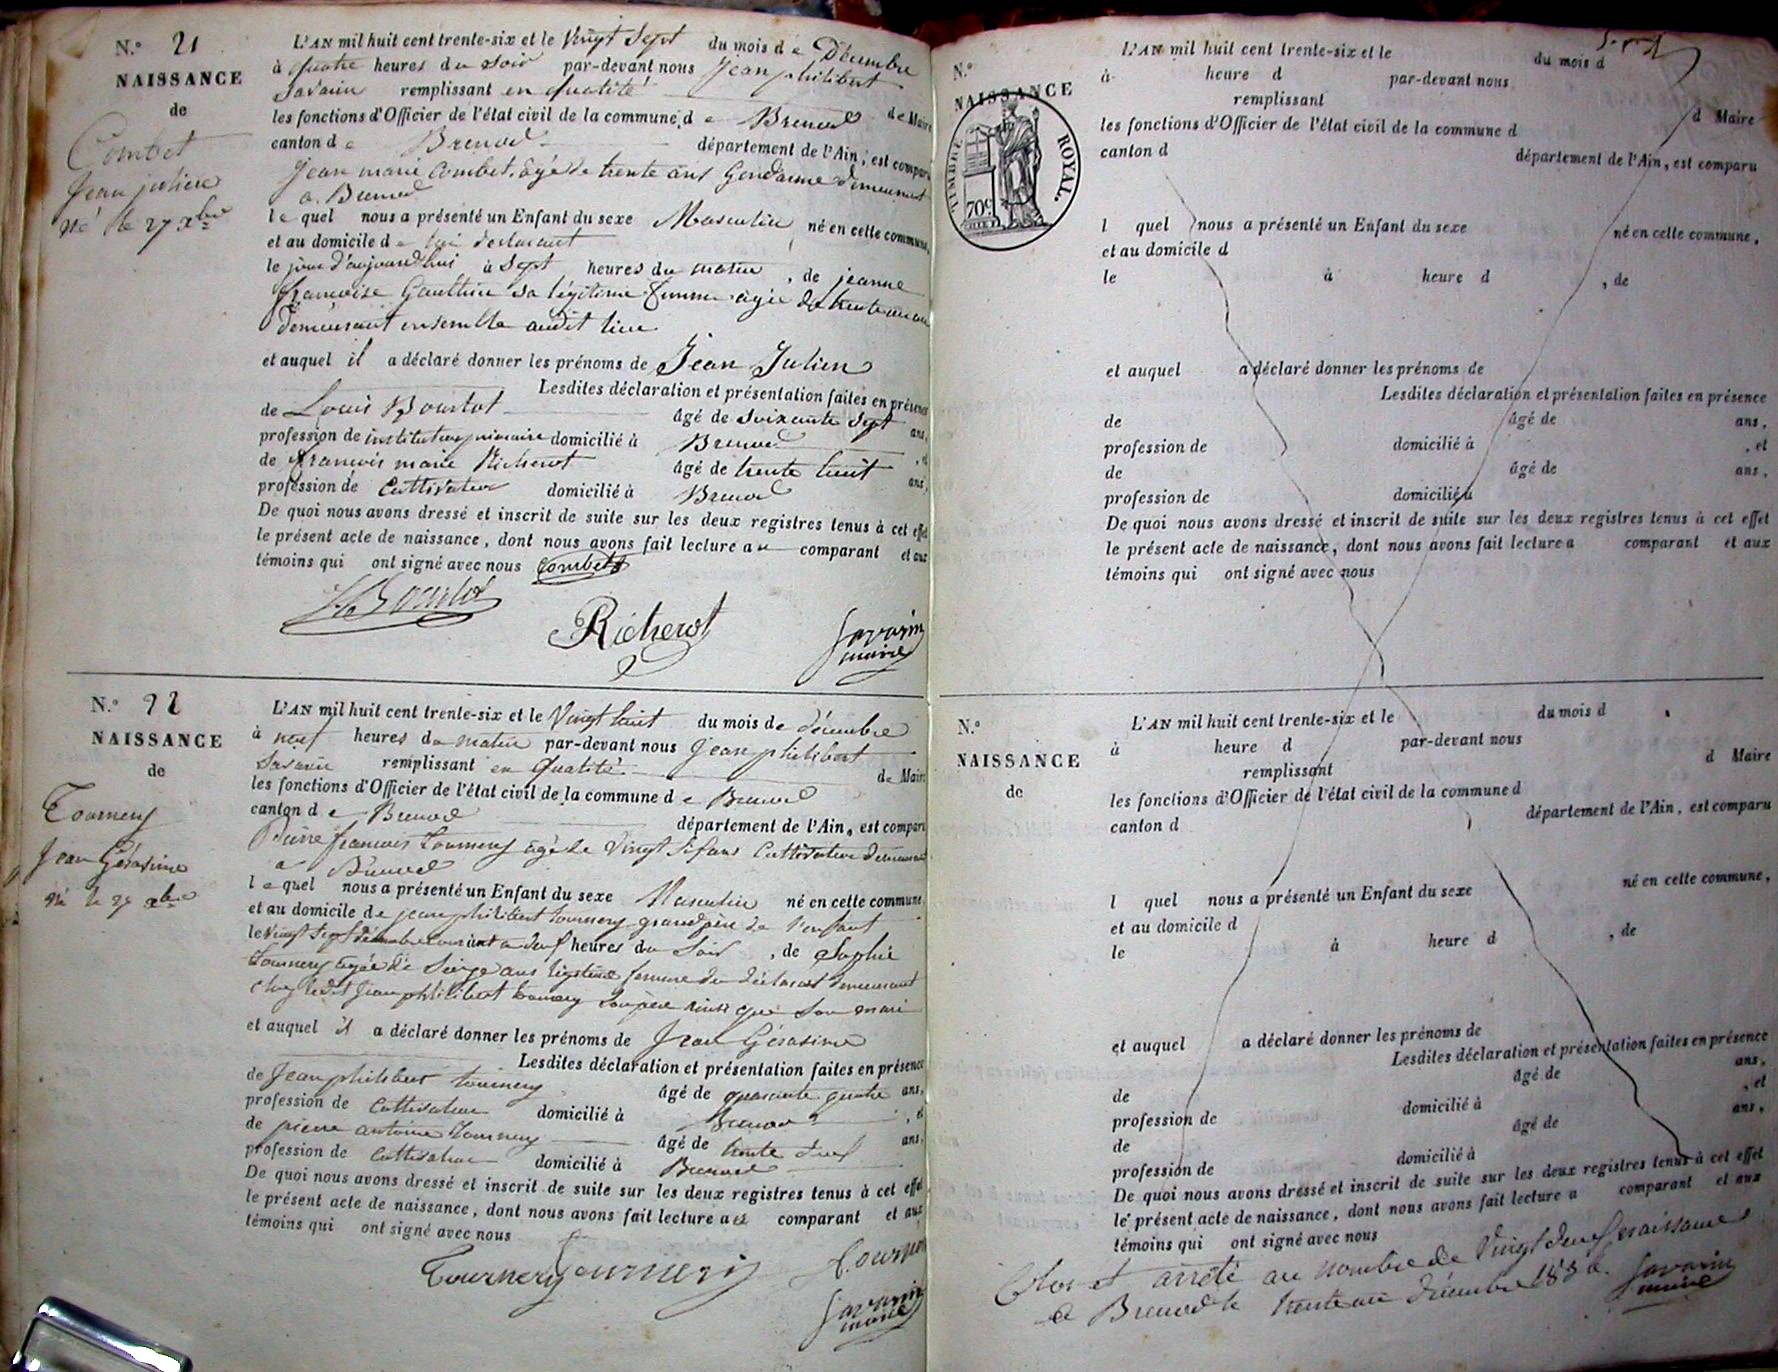 N.° 21
NAISSANCE
de
Combet
Jean julien
né le 27 Xbre
L'AN mil huit cent trente-six et le Vingt Sept du mois de Décembre
à quatre heures du soir par-devant nous Jean philibert
Savarin remplissant en qualité de Maire
les fonctions d'Officier de l'état civil de la commune de Brenod
canton de Brenod département de l'Ain, est comparu
Jean marie Combet, âgé de trente ans Gendarme demeurant
a Brenod
lequel nous a présenté un Enfant du sexe Masculin né en cette commune,
et au domicile de lui déclarant
le jour d'aujourd'hui à Sept heures du matin, de jeanne
françoise Gauthier sa légitime femme âgée de trente un ans
demeurant ensemble audit lieu
et auquel il a déclaré donner les prénoms de Jean Julien
Lesdites déclaration et présentation faites en présence
de Louis Bourtot âgé de soixante sept ans,
profession de instituteur primaire domicilié à Brenod, et
de francois marie Richerot âgé de trente huit ans,
profession de Cultivateur domicilié à Brenod
De quoi nous avons dressé et inscrit de suite sur les deux registres tenus à cet effet
le présent acte de naissance, dont nous avons fait lecture au comparant et aux
témoins qui ont signé avec nous Combet
Richerot
Savarin
maire
N.° 22
NAISSANCE
de
Tournery
Jean Gérasime
né le 27 Xbre
L'AN mil huit cent trente-six et le Vingt huit du mois de décembre
à neuf heures du matin par-devant nous Jean philibert
Savarin remplissant en qualité de Maire
les fonctions d'Officier de l'état civil de la commune de Brenod
canton de Brenod département de l'Ain, est comparu
Pierre francois Tournery âgé de Vingt six ans Cultivateur demeurant
a Brenod
lequel nous a présenté un Enfant du sexe Masculin né en cette commune,
et au domicile de jean philibert tournery grand père de l'enfant
le Vingt Sept décembre courant a neuf heures du Soir, de Sophie
Tournery âgée de Seize ans légitime femme du déclarant demeurant
chez ledit Jean philibert tournery son père ainsi que son mari
et auquel il a déclaré donner les prénoms de Jean Gérasime
Lesdites déclaration et présentation faites en présence
de Jean philibert tournery âgé de quarante quatre ans,
profession de Cultivateur domicilié à Brenod, et
de pierre antoine tournery âgé de trente deux ans,
profession de Cultivateur domicilié à Brenod
De quoi nous avons dressé et inscrit de suite sur les deux registres tenus à cet effet
le présent acte de naissance, dont nous avons fait lecture au comparant et aux
témoins qui ont signé avec nous
Tournery
Savarin
maire
N.°
NAISSANCE
TIMBRE ROYAL.
70c
L'AN mil huit cent trente-six et le du mois d
à heure d par-devant nous
remplissant d Maire
les fonctions d'Officier de l'état civil de la commune d
canton d département de l'Ain, est comparu
l quel nous a présenté un Enfant du sexe né en cette commune,
et au domicile d
le à heure d , de
et auquel a déclaré donner les prénoms de
Lesdites déclaration et présentation faites en présence
de âgé de ans,
profession de domicilié à , et
de âgé de ans,
profession de domicilié à
De quoi nous avons dressé et inscrit de suite sur les deux registres tenus à cet effet
le présent acte de naissance, dont nous avons fait lecture a comparant et aux
témoins qui ont signé avec nous
N.°
NAISSANCE
de
L'AN mil huit cent trente-six et le du mois d
à heure d par-devant nous
remplissant d Maire
les fonctions d'Officier de l'état civil de la commune d
canton d département de l'Ain, est comparu
l quel nous a présenté un Enfant du sexe né en cette commune,
et au domicile d
le à heure d , de
et auquel a déclaré donner les prénoms de
Lesdites déclaration et présentation faites en présence
de âgé de ans,
profession de domicilié à , et
de âgé de ans,
profession de domicilié à
De quoi nous avons dressé et inscrit de suite sur les deux registres tenus à cet effet
le présent acte de naissance, dont nous avons fait lecture a comparant et aux
témoins qui ont signé avec nous
Clos et arrêté au nombre de Vingt deux Naissances
a Brenod le trente un décembre 1836. Savarin
maire